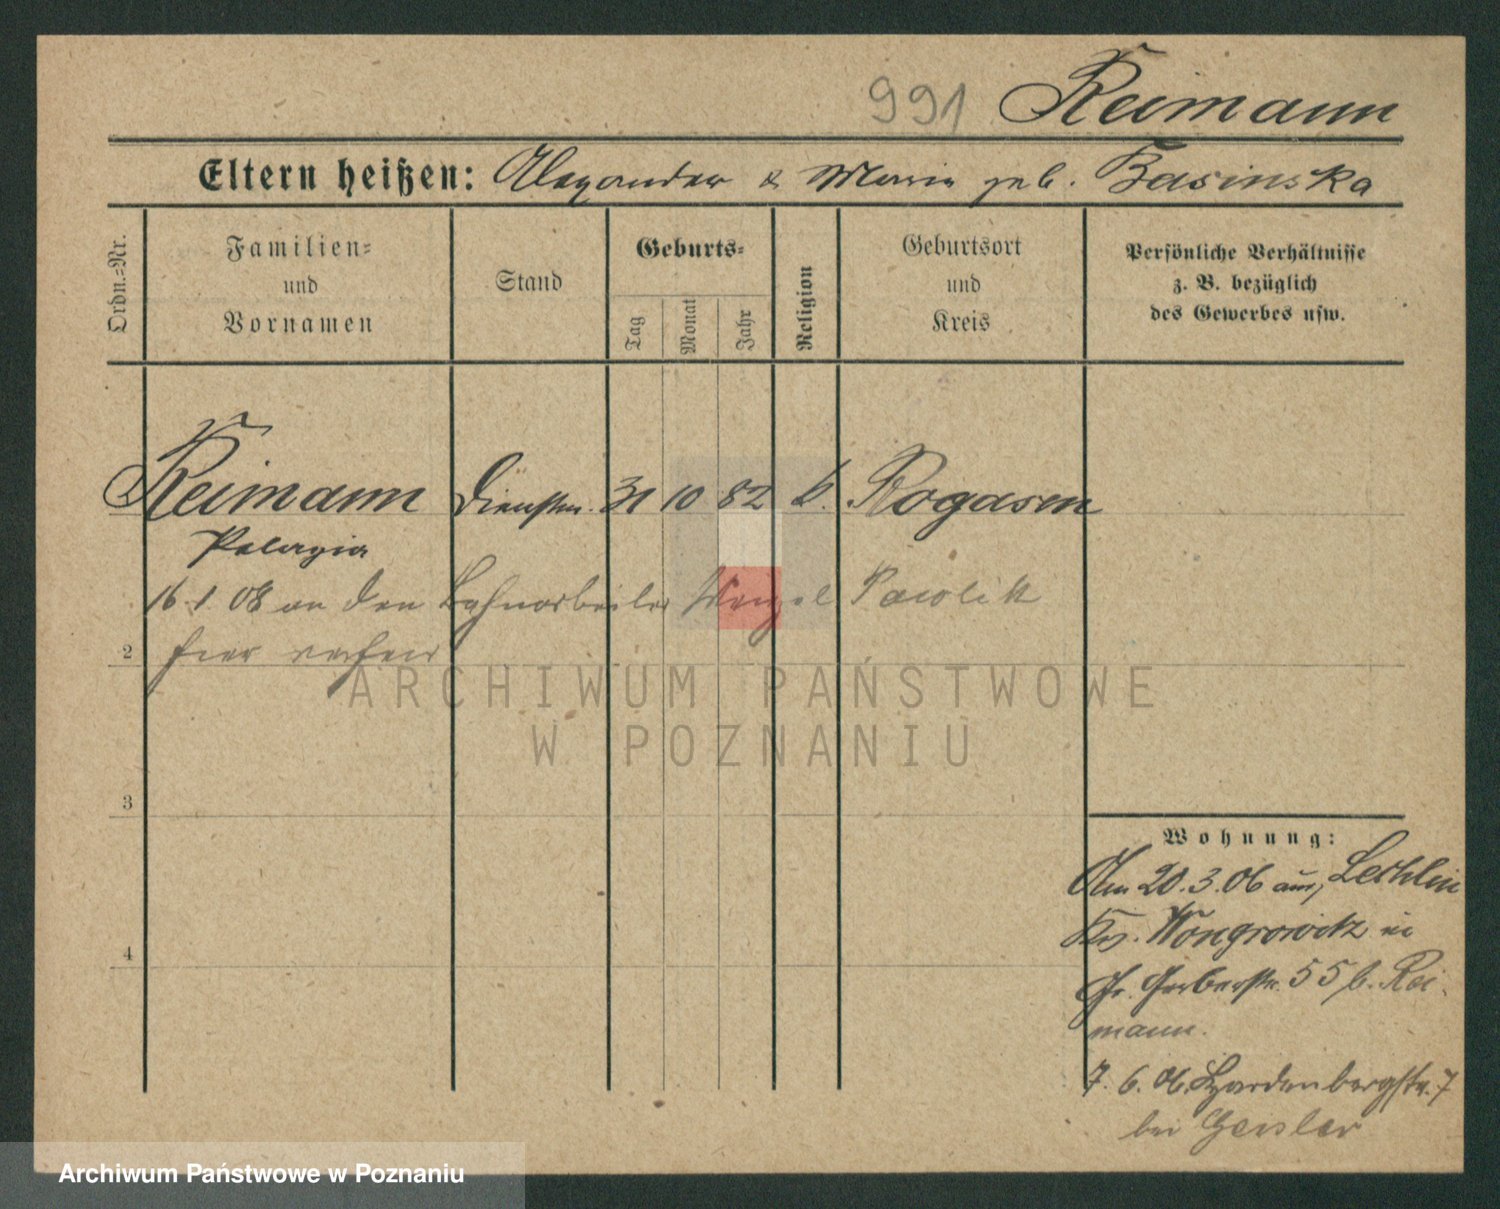 991 Reimann
Eltern heißen: Alexander & Maria geb. Basinska
Ordn.-Nr.
Familien-
und
Vornamen
Stand
Geburts-
Tag
Monat
Jahr
Religion
Geburtsort
und
Kreis
Persönliche Verhältnisse
z. B. bezüglich
des Gewerbes usw.
Reimann Dienstm. 31 10 82 k. Rogasen
Pelagia
16.1.08 an den Bahnarbeiter Wenzel Pawolik
2 hier verheir
3
4
Wohnung:
Am 20.3.06 aus Lechlin
Krs. Wongrowitz in
Gr. Gerberstr. 55 b. Rei-
mann.
7. 6. 06. Hardenbergstr. 7
bei Geisler
ARCHIWUM PAŃSTWOWE
W POZNANIU
Archiwum Państwowe w Poznaniu